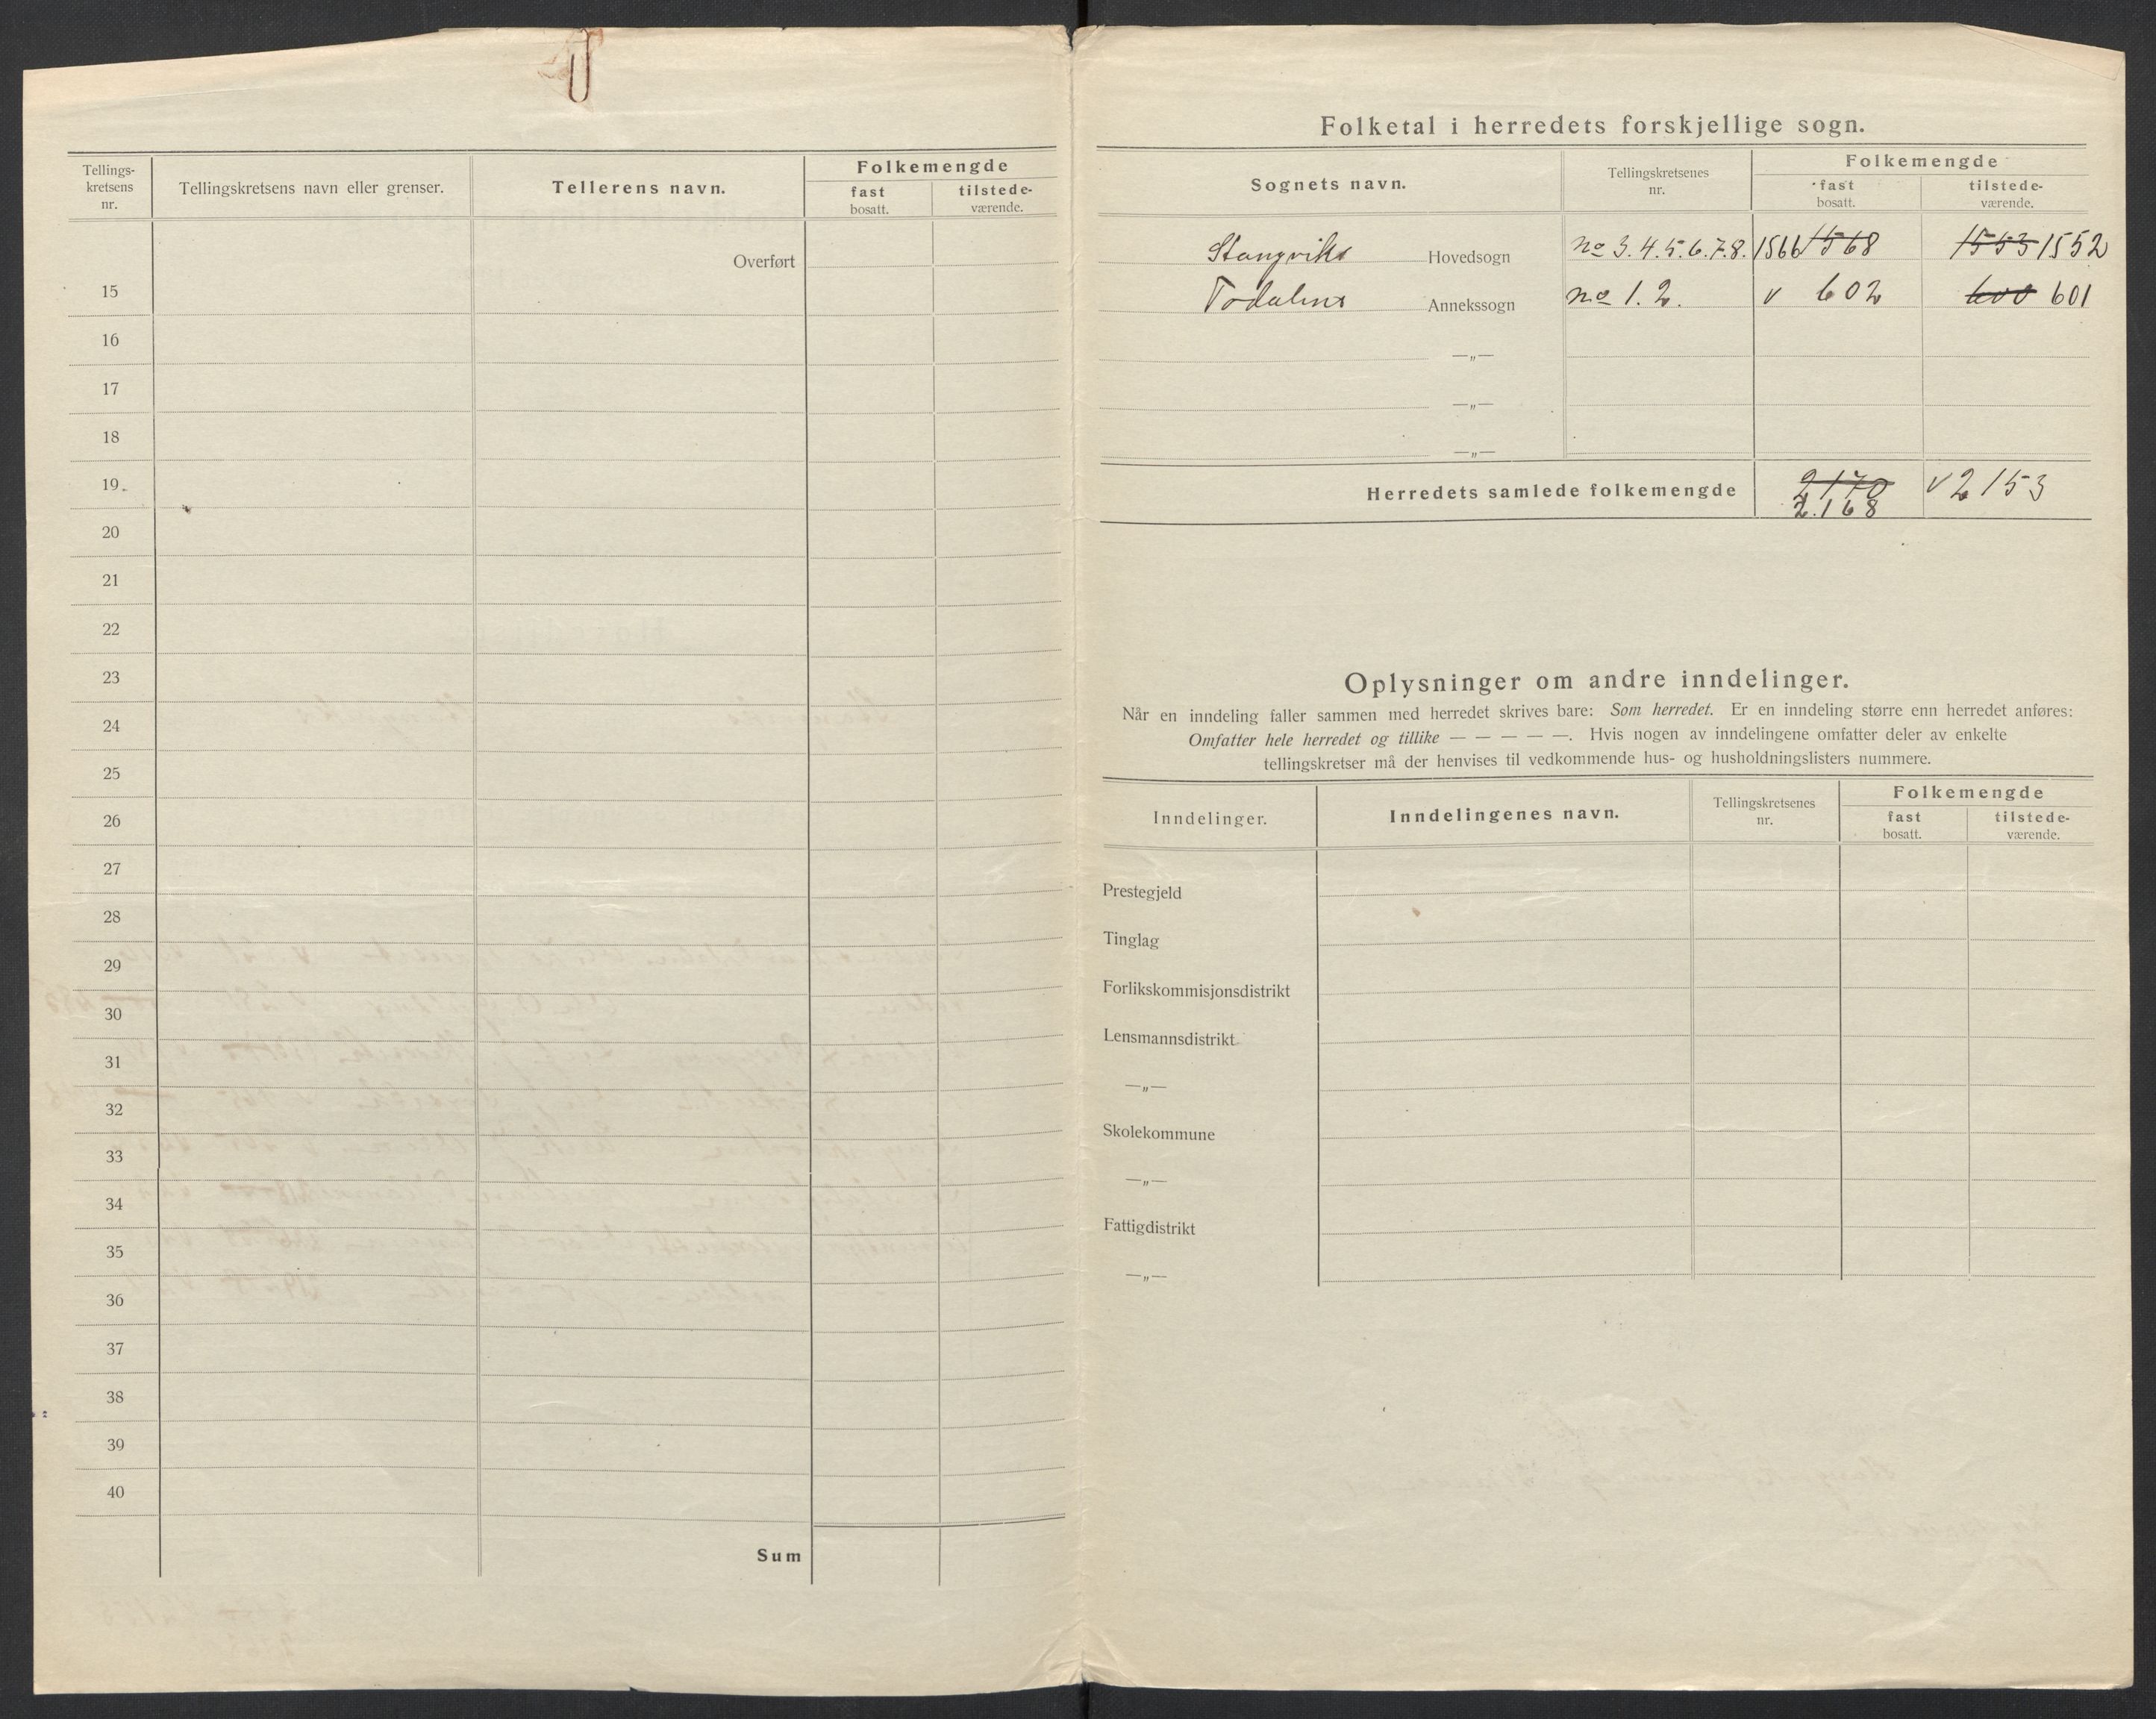 Tellings-
kretsens
nr.
Tellingskretsens navn eller grenser.
Tellerens navn.
Folkemengde
fast
bosatt.
tilstede-
værende.
Overført
15
16
17
18
19
20
21
22
23
24
25
26
27
28
29
30
31
32
33
34
35
36
37
38
39
40
Sum
Folketal i herredets forskjellige sogn.
Sognets navn.
Tellingskretsenes
nr.
Folkemengde
fast
bosatt.
tilstede-
værende.
Stangviks Hovedsogn no 3.4.5.6.7.8. 1566 1568 1553 1552
Todalens Annekssogn no 1.2. v 602 600 601
—„—
—„—
—„—
Herredets samlede folkemengde 2170 v 2153
2.168
Oplysninger om andre inndelinger.
Når en inndeling faller sammen med herredet skrives bare: Som herredet. Er en inndeling større enn herredet anføres:
Omfatter hele herredet og tillike — — — — —. Hvis nogen av inndelingene omfatter deler av enkelte
tellingskretser må der henvises til vedkommende hus- og husholdningslisters nummere.
Inndelinger.
Inndelingenes navn.
Tellingskretsenes
nr.
Folkemengde
fast
bosatt.
tilstede-
værende.
Prestegjeld
Tinglag
Forlikskommisjonsdistrikt
Lensmannsdistrikt
—„—
Skolekommune
—„—
Fattigdistrikt
—„—